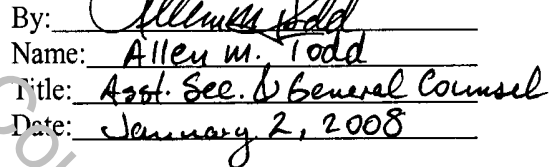 By: Allen M Todd
Name: Allen M. Todd
Title: Asst. Sec. & General Counsel
Date: January 2, 2008